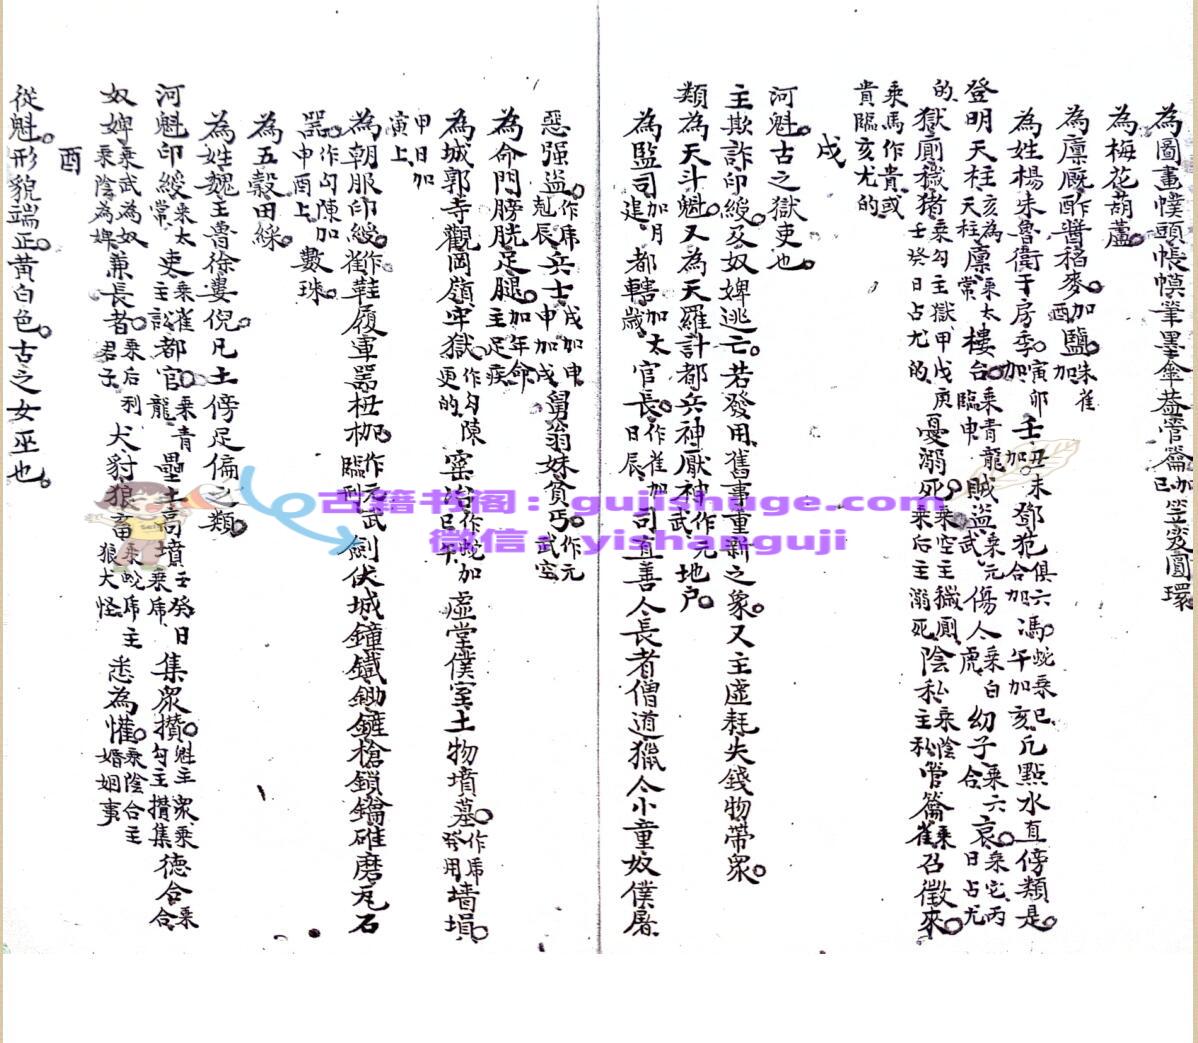 為圖畫幞頭帳幙筆墨傘蓋管籥加巳笠姿圓環
為梅花葫蘆
為廩厩酢醬稻麥加酉鹽朱雀加
為姓楊朱魯衛于房季加寅卯壬加丑未鄧范俱六合加馮蛇乘巳午加亥凡點水直傍類是
登明天柱亥為天柱廩乘太常樓台乘青龍臨申賊盜乘元武傷人乘白虎幼子乘六合哀乘宅丙日占尤
的獄廁穢猪乘勾主獄甲戊庚壬癸日占尤的憂溺死乘空主穢廁乘后主溺死陰私乘陰主私管籥乘雀召徵來
乘馬作貴或
貴臨亥尤的
戌
河魁古之獄吏也
主欺詐印綬及奴婢逃亡若發用舊事重新之象又主虛耗失錢物帶眾
類為天斗魁又為天羅計都兵神厭神作元武地户
為監司加月建都轄加太歲官長作雀加日辰司直善人長者僧道獵人小童奴僕屠
惡强盜作虎剋辰兵士戌加申申加戌舅翁妹貧丐作元武空
為命門膀胱足腿加年命主足疾
為城郭寺觀岡嶺牢獄作勾陳更的窯冶作蛇加巳午虛堂僕室土物墳墓作虎發用墻塤
甲日加
寅上
為朝服印綬作鞋履軍噐杻枷作元武臨刑劍伏城鐘鐵鋤鎗鎖鑰碓磨瓦石
噐作勾陳加申酉上數珠
為五穀田綵
為姓魏主魯徐婁倪凡土傍足偏之類
河魁印綬乘太常吏乘雀主訟都官乘青龍壘土高墳壬癸日乘虎集眾攢魁主眾乘勾主攢集德合乘合
奴婢乘武為奴乘陰為婢兼長者乘后利君子犬豺狼畜乘蛇虎主狼犬怪悉為懽乘陰合主婚姻事
酉
從魁形貌端正黃白色古之女巫也
古籍书阁：gujishuge.com
微信：yishanguji